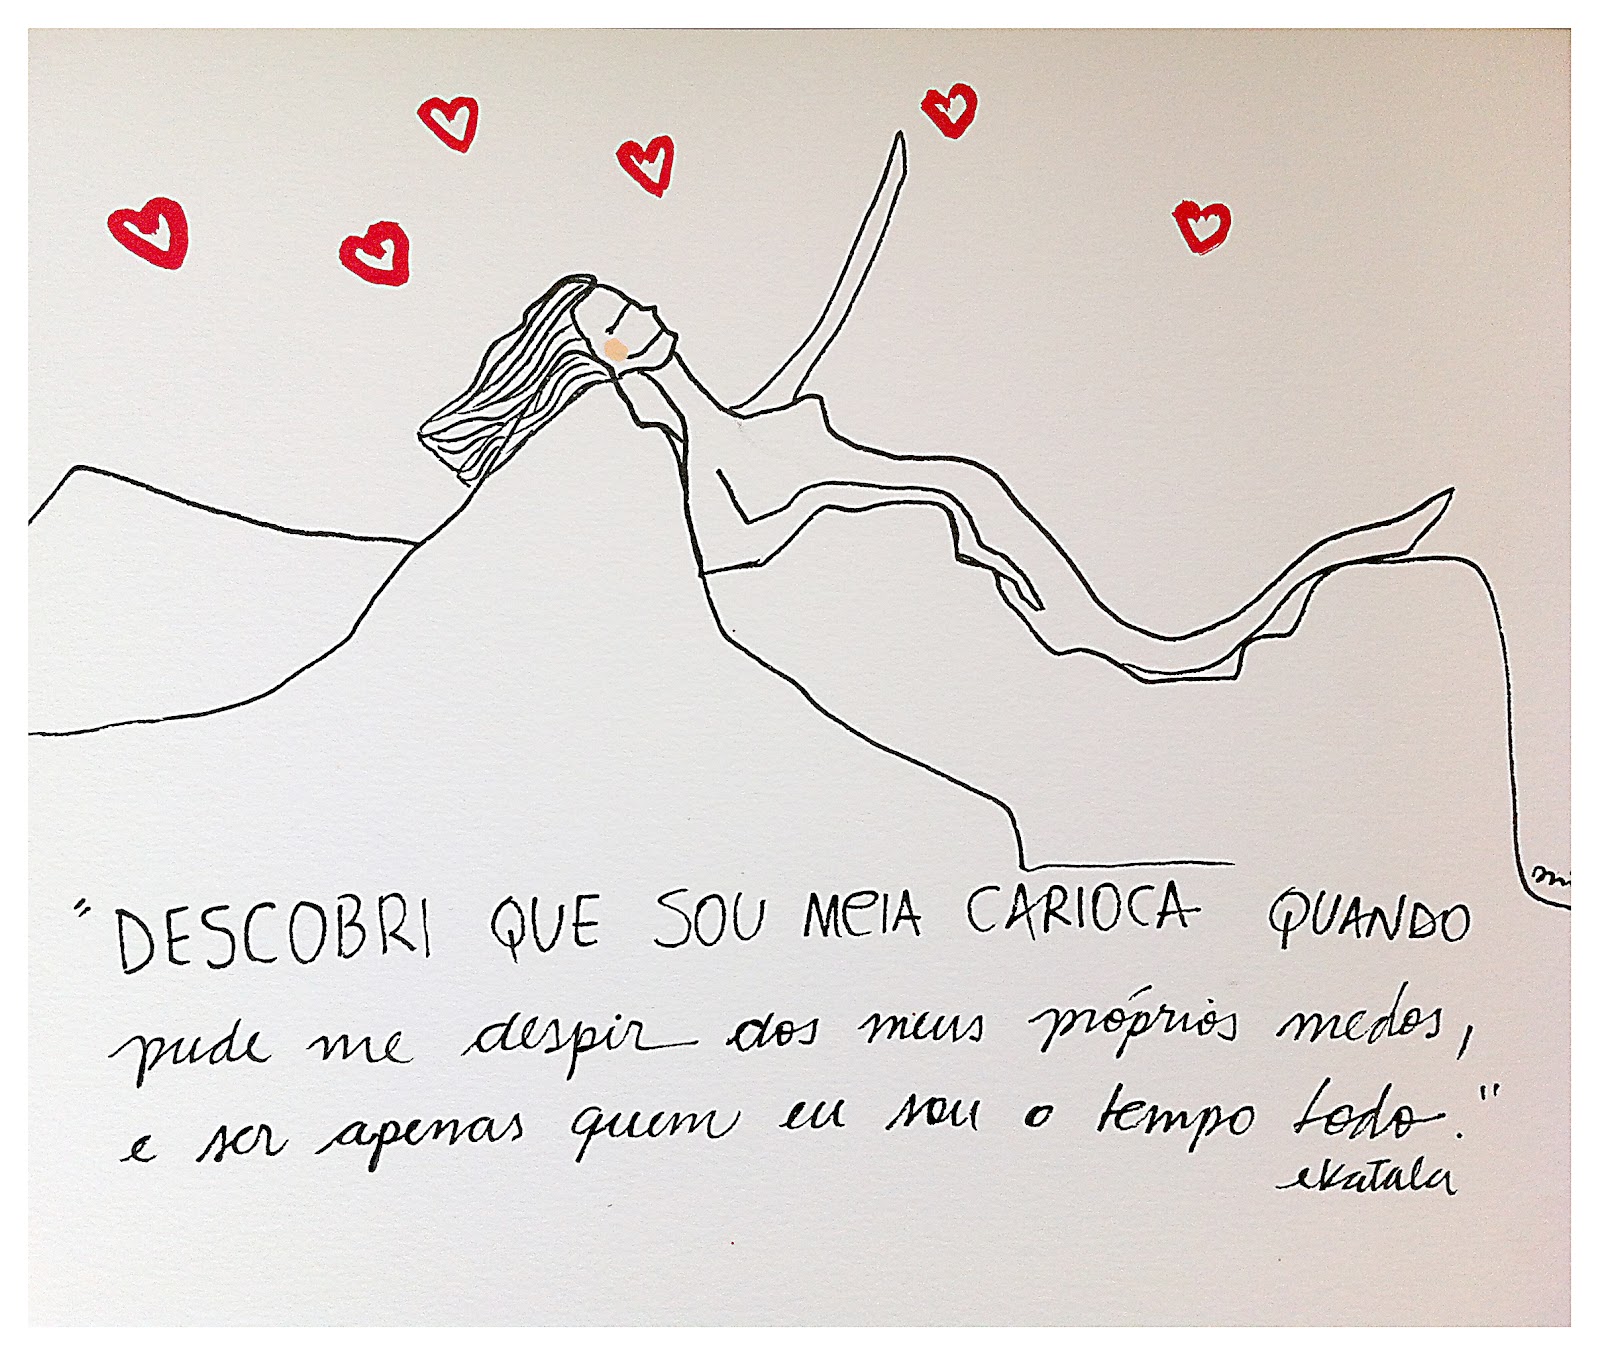 "DESCOBRI QUE SOU MEIA CARIOCA QUANDO
pude me despir dos meus próprios medos,
e ser apenas quem eu sou o tempo todo."
ekatala